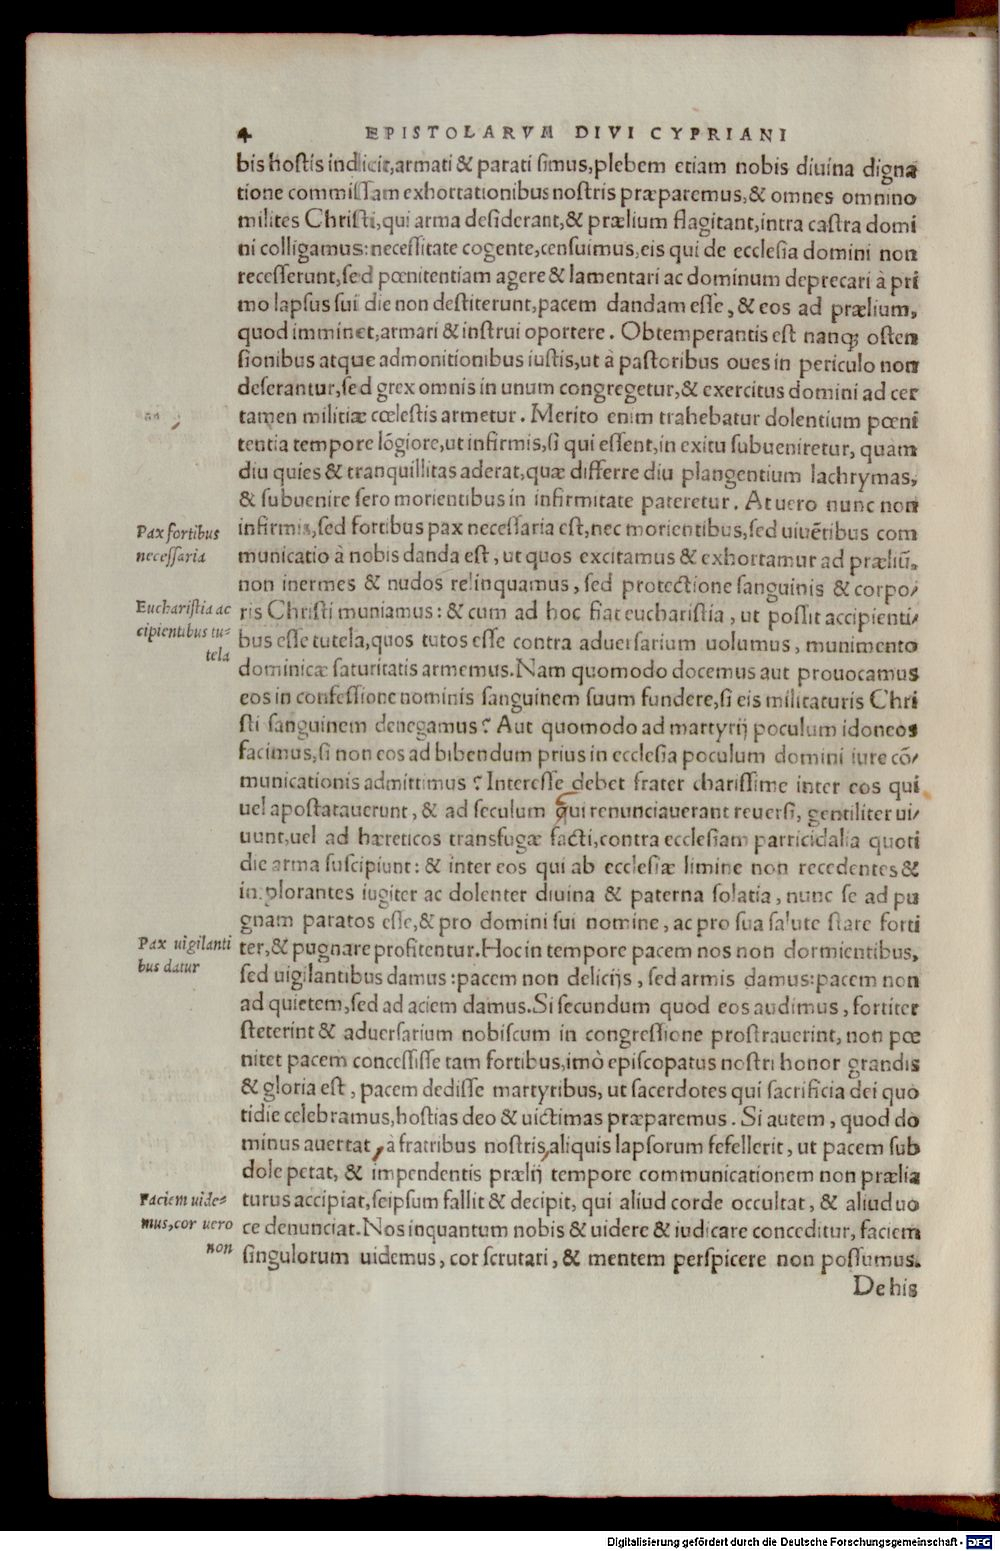 4 EPISTOLARVM DIVI CYPRIANI
bis hostis indicit,armati & parati simus,plebem etiam nobis diuina digna
tione commissam exhortationibus nostris præparemus,& omnes omnino
milites Christi,qui arma desiderant,& prælium flagitant,intra castra domi
ni colligamus:necessitate cogente,censuimus,eis qui de ecclesia domini non
recesserunt,sed pœnitentiam agere & lamentari ac dominum deprecari à pri
mo lapsus sui die non destiterunt,pacem dandam esse, & eos ad prælium,
quod imminet,armari & instrui oportere. Obtemperantis est nanq; osten
sionibus atque admonitionibus iustis,ut à pastoribus oues in periculo non
deserantur,sed grex omnis in unum congregetur,& exercitus domini ad cer
tamen militiæ cœlestis armetur. Merito enim trahebatur dolentium pœni
tentia tempore lõgiore,ut infirmis,si qui essent,in exitu subueniretur, quam
diu quies & tranquillitas aderat,quæ differre diu plangentium lachrymas,
& subuenire sero morientibus in infirmitate pateretur. At uero nunc non
Pax fortibus
necessaria
infirmis,sed fortibus pax necessaria est,nec morientibus,sed uiuẽtibus com
municatio à nobis danda est, ut quos excitamus & exhortamur ad præliũ,
non inermes & nudos relinquamus, sed protectione sanguinis & corpo/
Eucharistia ac
cipientibus tu=
tela
ris Christi muniamus: & cum ad hoc fiat eucharistia, ut possit accipienti/
bus esse tutela,quos tutos esse contra aduersarium uolumus, munimento
dominicæ saturitatis armemus.Nam quomodo docemus aut prouocamus
eos in confessione nominis sanguinem suum fundere,si eis militaturis Chri
sti sanguinem denegamus? Aut quomodo ad martyrij poculum idoneos
facimus,si non eos ad bibendum prius in ecclesia poculum domini iure cõ/
municationis admittimus? Interesse debet frater charissime inter eos qui
uel apostatauerunt, & ad seculum qui renunciauerant reuersi, gentiliter ui/
uunt,uel ad hæreticos transfugæ facti,contra ecclesiam parricidalia quoti
die arma suscipiunt: & inter eos qui ab ecclesiæ limine non recedentes &
implorantes iugiter ac dolenter diuina & paterna solatia, nunc se ad pu
gnam paratos esse,& pro domini sui nomine, ac pro sua salute stare forti
Pax uigilanti
bus datur
ter,& pugnare profitentur.Hoc in tempore pacem nos non dormientibus,
sed uigilantibus damus:pacem non delicijs, sed armis damus:pacem non
ad quietem,sed ad aciem damus.Si secundum quod eos audimus, fortiter
steterint & aduersarium nobiscum in congressione prostrauerint, non pœ
nitet pacem concessisse tam fortibus,imò episcopatus nostri honor grandis
& gloria est, pacem dedisse martyribus, ut sacerdotes qui sacrificia dei quo
tidie celebramus,hostias deo & uictimas præparemus. Si autem, quod do
minus auertat, à fratribus nostris,aliquis lapsorum fefellerit, ut pacem sub
dole petat, & impendentis prælij tempore communicationem non prælia
Faciem uide=
mus,cor uero
non
turus accipiat,seipsum fallit & decipit, qui aliud corde occultat, & aliud uo
ce denunciat.Nos inquantum nobis & uidere & iudicare conceditur, faciem
singulorum uidemus, cor scrutari, & mentem perspicere non possumus.
De his
Digitalisierung gefördert durch die Deutsche Forschungsgemeinschaft - DFG